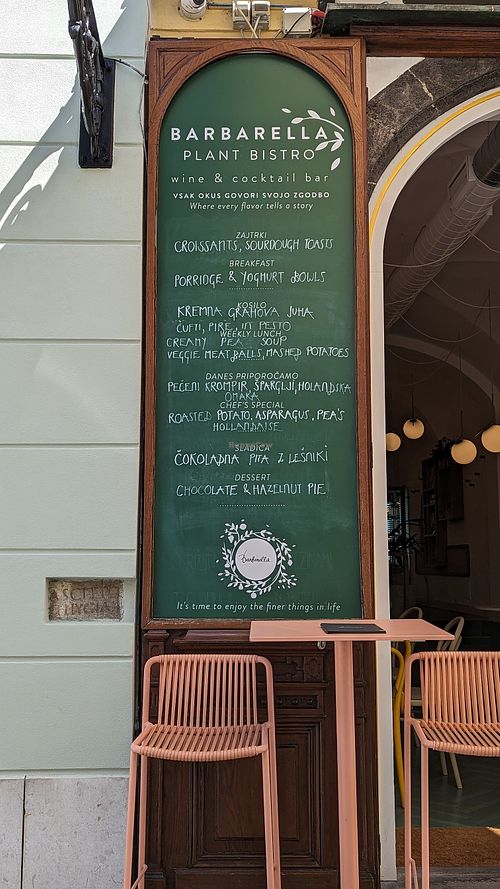 BARBARELLA
PLANT BISTRO
wine & cocktail bar
VSAK OKUS GOVORI SVOJO ZGODBO
Where every flavor tells a story
ZAJTRKI
CROISSANTS, SOURDOUGH TOASTS
BREAKFAST
PORRIDGE & YOGHURT BOWLS
KOSILO
KREMNA GRAHOVA JUHA
ČUFTI, PIRE, IN PESTO
WEEKLY LUNCH
CREAMY PEA SOUP
VEGGIE MEATBALLS, MASHED POTATOES
DANES PRIPOROČAMO
PEČENI KROMPIR, ŠPARGLJI, HOLANDSKA
OMAKA
CHEF'S SPECIAL
ROASTED POTATO, ASPARAGUS, PEA'S
HOLLANDAISE
SLADICA
ČOKOLADNA PITA Z LEŠNIKI
DESSERT
CHOCOLATE & HAZELNUT PIE
Barbarella
It's time to enjoy the finer things in life